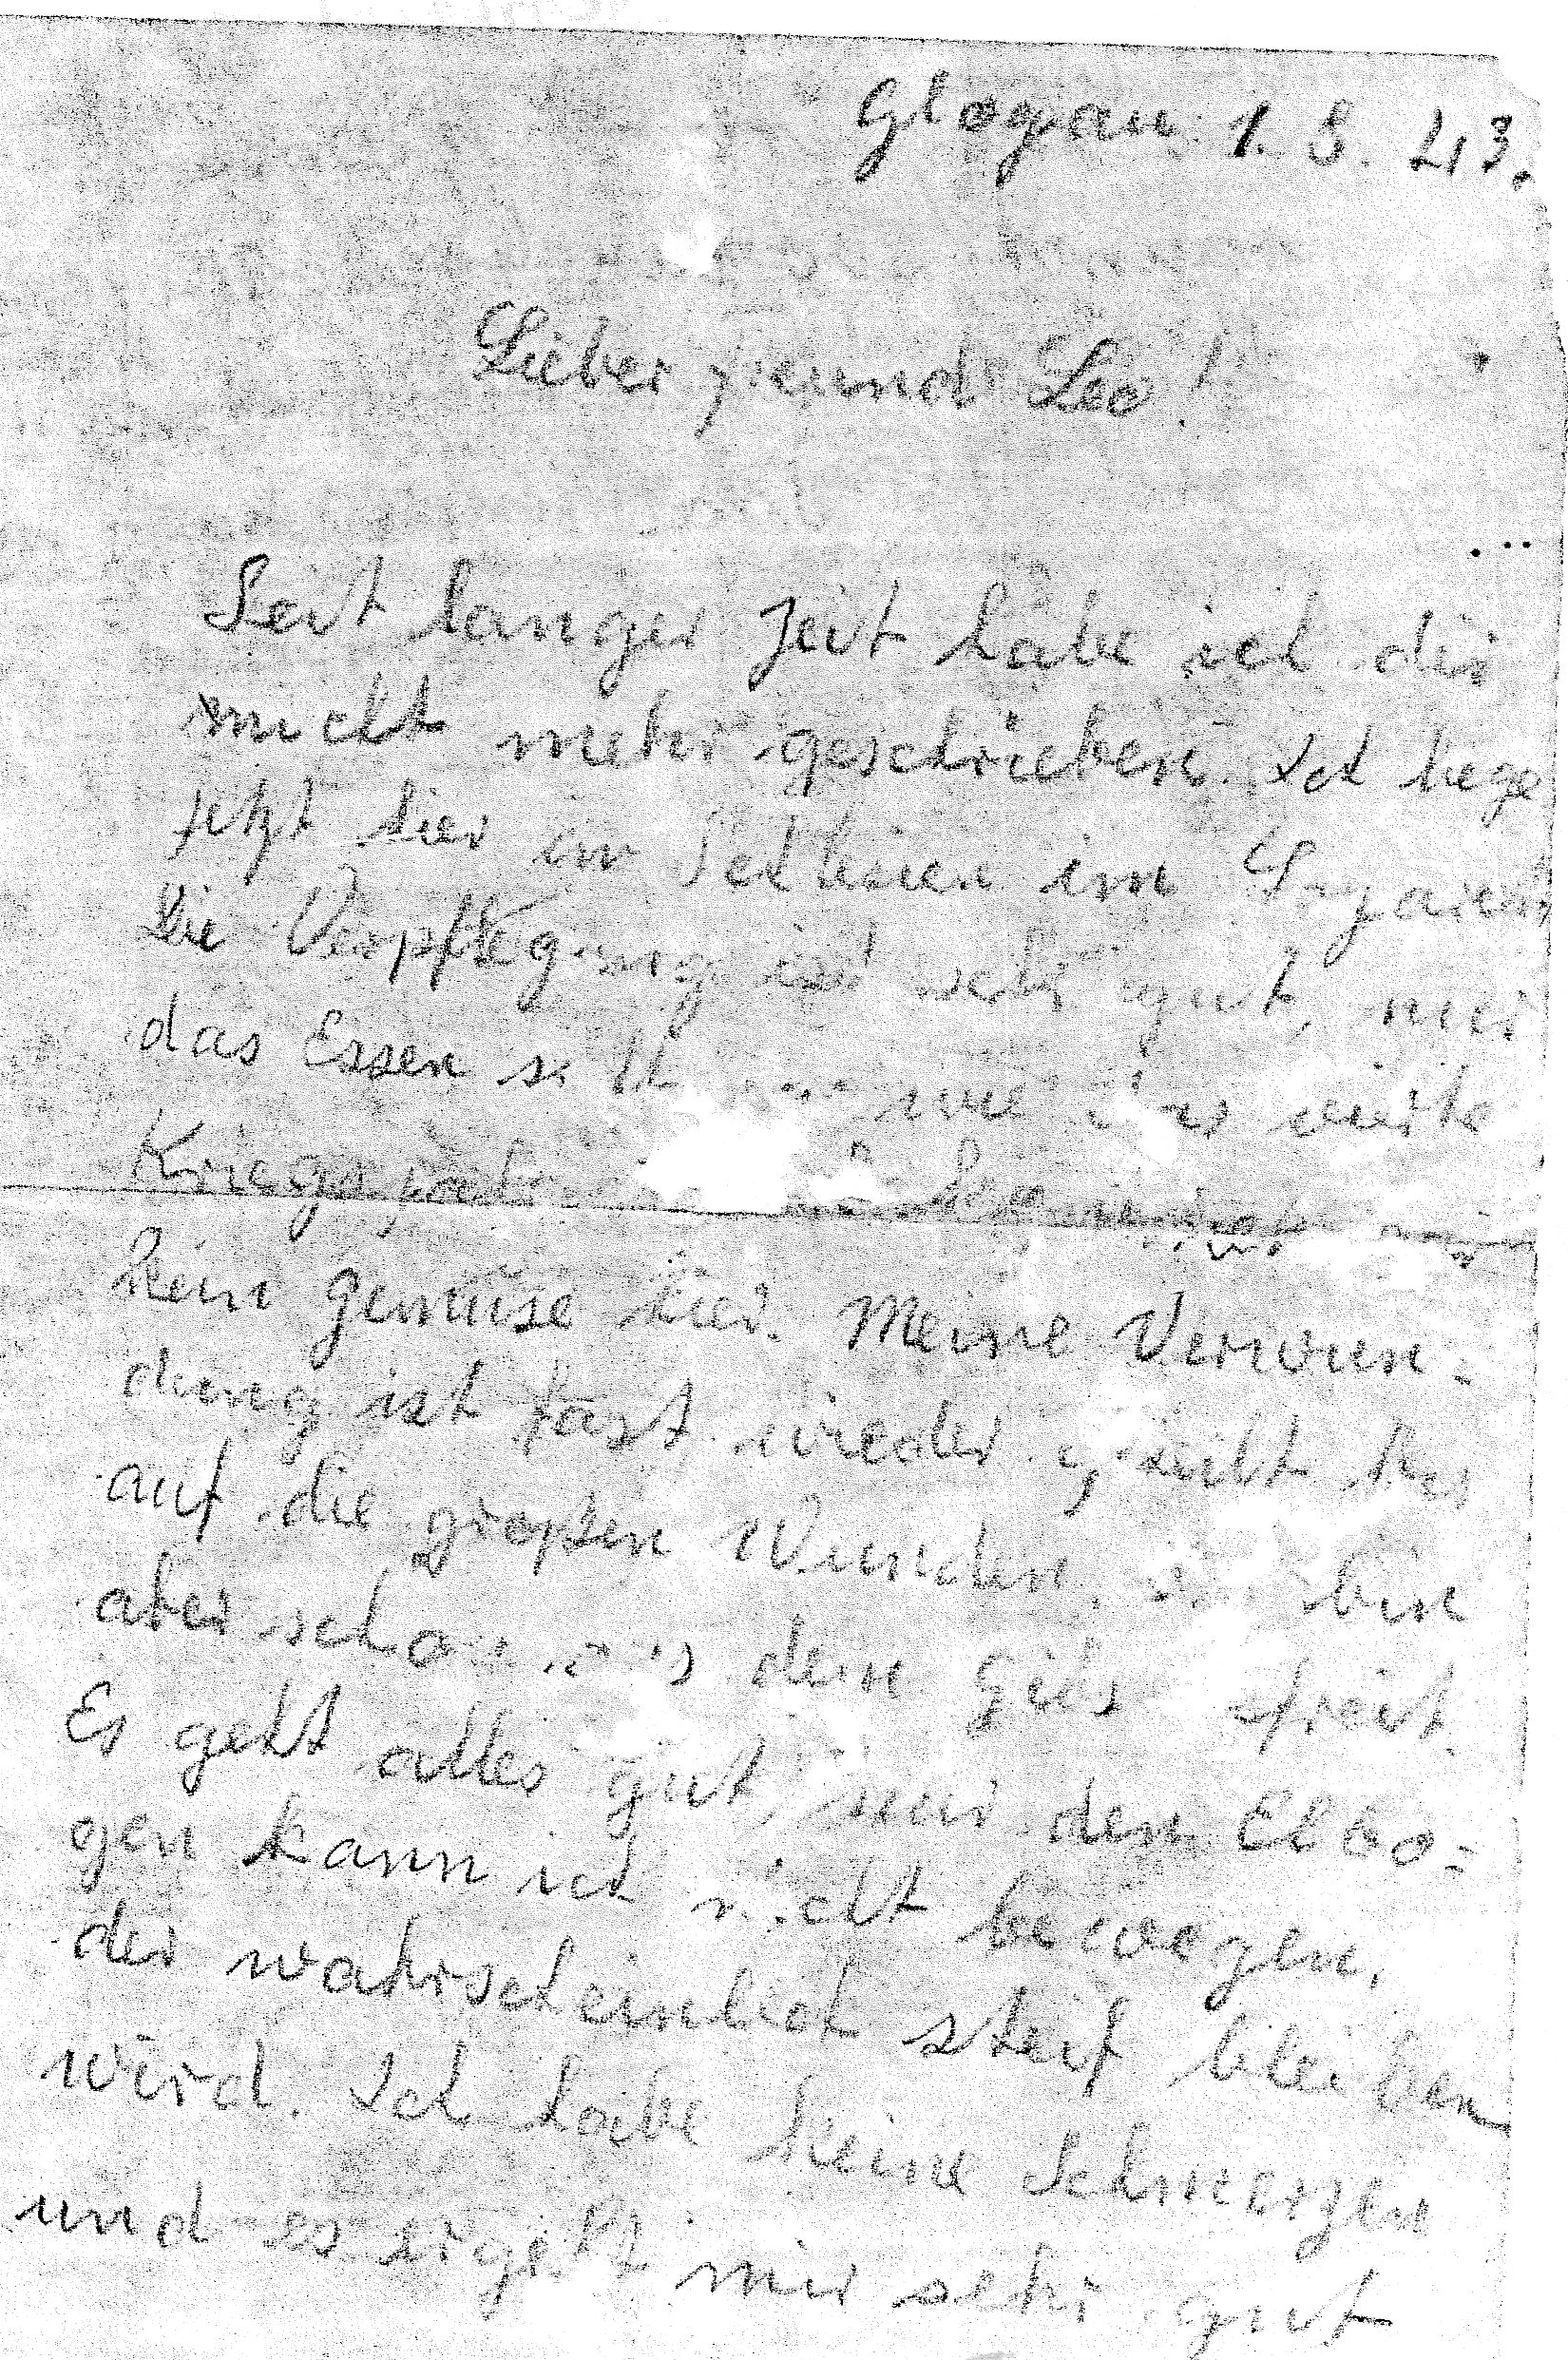 Glogau 1. 8. 43.
Lieber Freund Leo!
Seit langer Zeit habe ich dir
nicht mehr geschrieben. Ich liege
jetzt hier in Schlesien im Lazarett
Die Verpflegung ist sehr gut, nur
das Essen vierte
Kriegsjahr
kein Gemüse hier. Meine Verwun=
dung ist fast wieder geheilt bis
auf die großen Wunden, bin
aber schon dem Gips befreit.
Es geht alles gut, nur den Elbo=
gen kann ich nicht bewegen,
der wahrscheinlich steif bleiben
wird. Ich habe keine Schmerzen
und es ergeht mir sehr gut